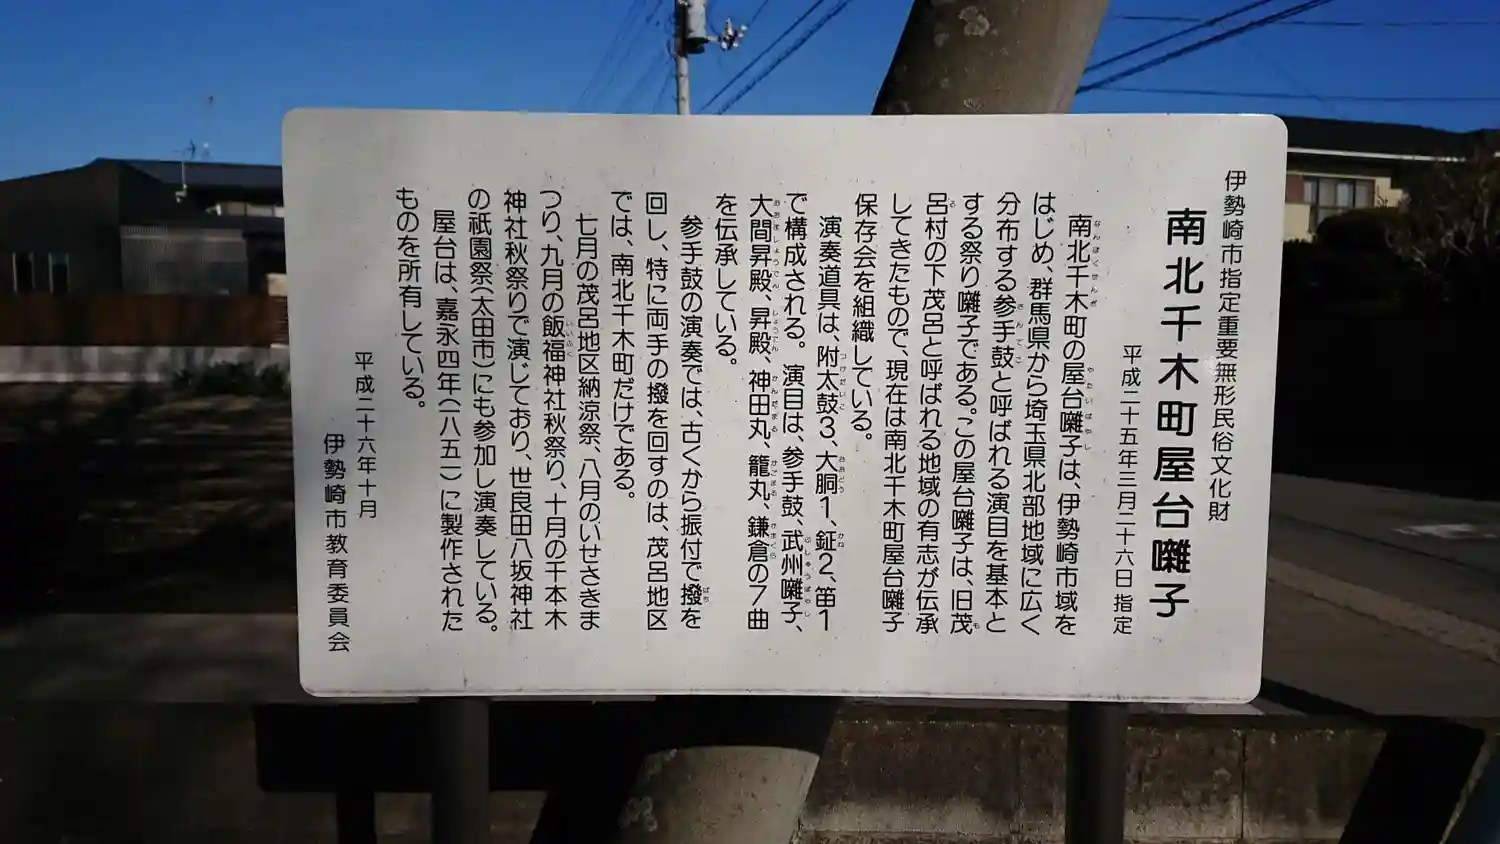 伊勢崎市指定重要無形民俗文化財
南北千木町屋台囃子
平成二十五年三月二十六日指定
南北千木町の屋台囃子は、伊勢崎市域を
はじめ、群馬県から埼玉県北部地域に広く
分布する参手鼓と呼ばれる演目を基本と
する祭り囃子である。この屋台囃子は、旧茂
呂村の下茂呂と呼ばれる地域の有志が伝承
してきたもので、現在は南北千木町屋台囃子
保存会を組織している。
演奏道具は、附太鼓3、大胴1、鉦2、笛1
で構成される。演目は、参手鼓、武州囃子、
大間昇殿、昇殿、神田丸、籠丸、鎌倉の7曲
を伝承している。
参手鼓の演奏では、古くから振付で撥を
回し、特に両手の撥を回すのは、茂呂地区
では、南北千木町だけである。
七月の茂呂地区納涼祭、八月のいせさきま
つり、九月の飯福神社秋祭り、十月の千本木
神社秋祭りで演じており、世良田八坂神社
の祇園祭(太田市)にも参加し演奏している。
屋台は、嘉永四年(一八五一)に製作された
ものを所有している。
平成二十六年十月
伊勢崎市教育委員会